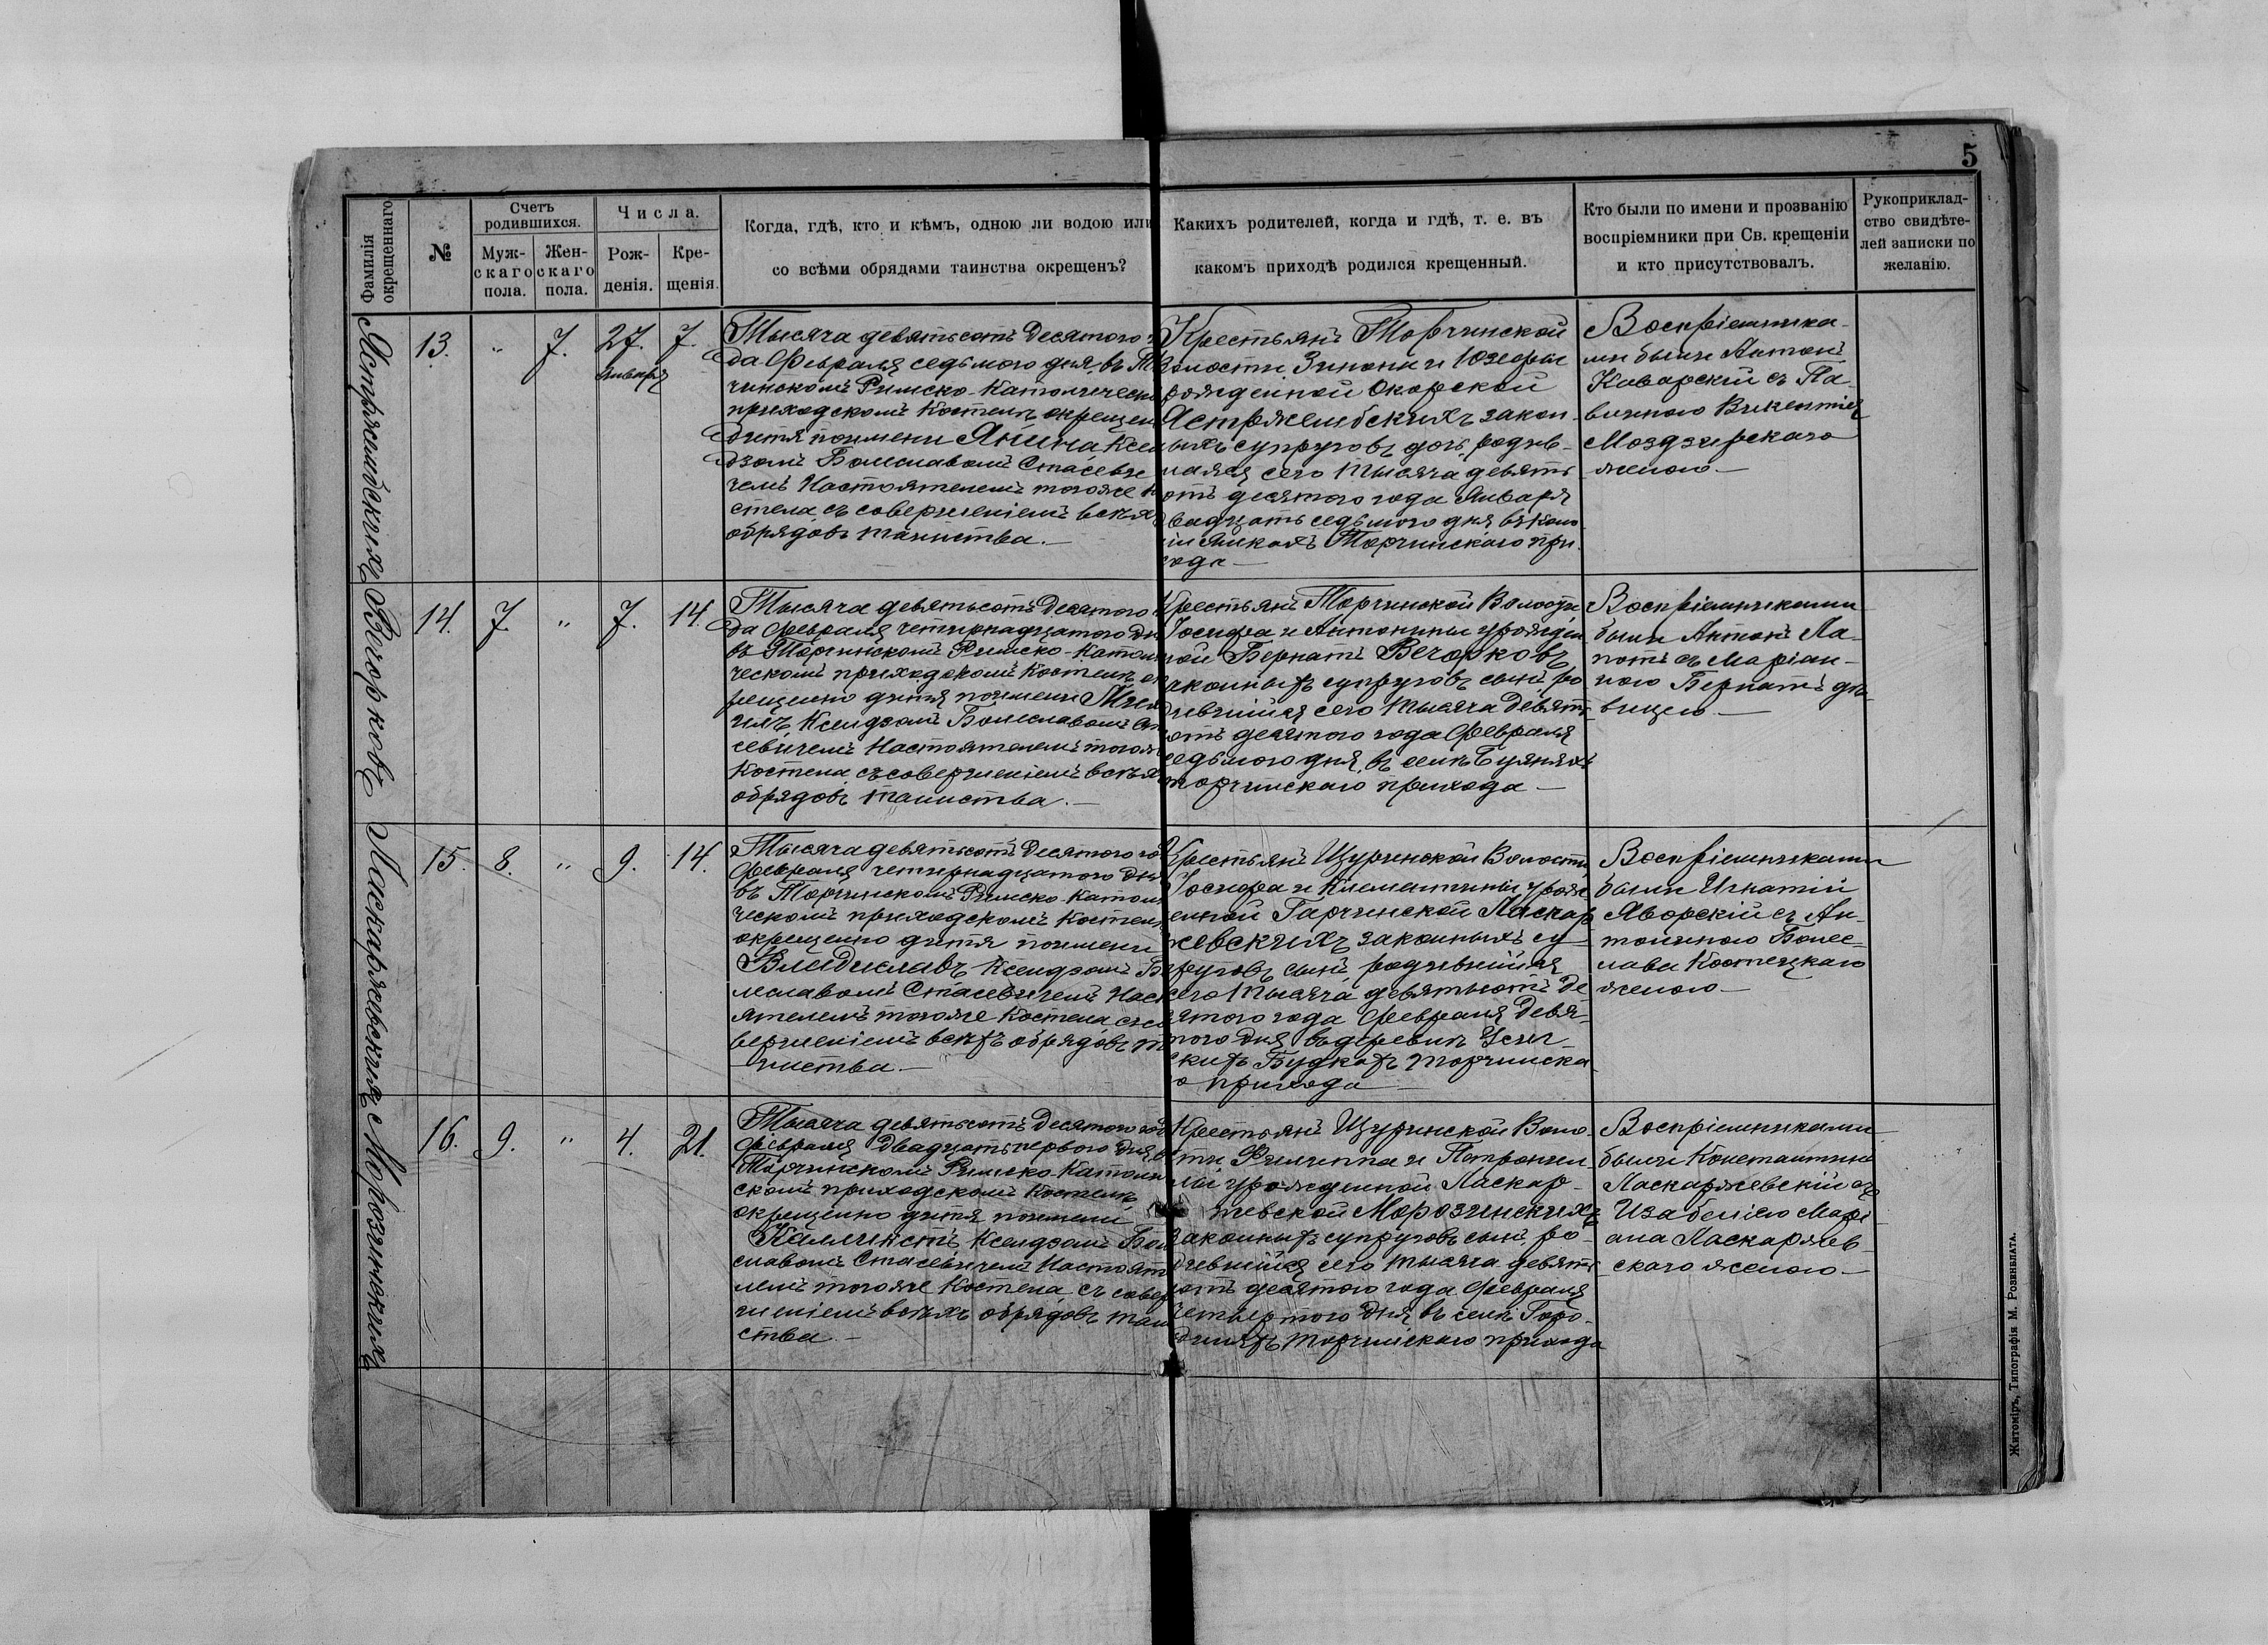 5
Фамилія окрещеннаго
№
Счетъ родившихся.
Муж-
скаго
пола.
Жен-
скаго
пола.
Числа.
Рож-
денія.
Кре-
щенія.
Когда, гдѣ, кто и кѣмъ, одною ли водою или
со всѣми обрядами таинства окрещенъ?
Какихъ родителей, когда и гдѣ, т. е. въ
какомъ приходѣ родился крещенный.
Кто были по имени и прозванію
воспріемники при Св. крещеніи
и кто присутствовалъ.
Рукоприклад-
ство свидѣте-
лей записки по
желанію.
Ястржембскихъ
13.
"
7.
27.
Января
7.
Тысяча девятьсотъ Десятого
да Февраля седьмого дня, въ
чинскомъ Римско-Католическ
приходскомъ Костелѣ окрещен
дитя поимени Янина Ксен
дзомъ Болеславомъ Стасеви
чемъ Настоятелемъ тогоже
стела съ совершеніемъ всѣх
обрядовъ таинства.—
Крестьянъ Торчинской
Волости Зинона и Юзефы
рожденной Окорской
Ястржембскихъ закон-
ыхъ супруговъ дочь, родив-
шаяся сего Тысяча девять
отъ десятого года Января
вадцать седьмого дня въ Коло
іи Ямкахъ Торчинскаго при-
хода—
Воспріемника-
ми были Антонъ
Каварскій съ Па-
влиною Викентія
Моздзирскаго
женою—
Вечорковъ
14.
7.
"
7.
14.
Тысяча девятьсотъ Десятого
да Февраля четырнадцатого дн
въ Торчинскомъ Римско-Катол
ческомъ приходскомъ Костелѣ
рещено дитя поимени
Ксендзомъ Болеславомъ
севичемъ Настоятелемъ тогож
Костела, съ совершеніемъ всѣх
обрядовъ таинства.—
Крестьянъ Торчинской Волости
Іосифа и Антонины урожден
ной Бернатъ Вечорковъ
аконныхъ супруговъ сынъ, ро
дившійся сего тысяча девять
отъ десятого года Февраля
едьмого дня, въ селѣ Буянях
торчинскаго прихода—
Воспріемниками
были Антонъ Ла-
потъ съ Маріан-
ною Бернатъ дѣ-
вицею—
Ласкаржевскихъ
15.
8.
"
9.
14.
Тысяча девятьсотъ Десятого го
Февраля четырнадцатого дня
въ Торчинскомъ Римско-Катол
ческомъ приходскомъ Костелѣ
окрещено дитя поимени
Владиславъ Ксендзомъ Бо
леславомъ Стасевичемъ Наст
ятелемъ тогоже Костела, съ со
вершеніемъ всѣхъ обрядовъ т
инства.—
Крестьянъ Щуринской Волости
Іосифа и Клементиніи урож
енной Гарчинской Ласкар
жевскихъ законныхъ су
руговъ сынъ, родившійся
сего Тысяча девятьсотъ Де
ятого года Февраля Девя-
того дня въ деревнѣ Усич-
скихъ Будкахъ торчинска
о прихода
Воспріемниками
были Игнатій
Яворскій съ Ан-
тониною Боле-
слава Костецкаго
женою—
Морозинскихъ
16.
9.
"
4.
21.
Тысяча девятьсотъ Десятого год
Февраля Двадцать первого дня, в
Торчинскомъ Римско-Католич
скомъ приходскомъ Костелѣ
окрещено дитя поимени
Каликстъ Ксендзомъ Бол
славомъ Стасевичемъ Настоят
лемъ тогоже Костела, съ совер
шеніемъ всѣхъ обрядовъ таин
ства.—
Крестьянъ Щуринской Воло-
сти Филиппа и Петронел-
ліи урожденной Ласкар-
жевской Морозинскихъ
законныхъ супруговъ сынъ, ро-
дившійся сего тысяча девять
отъ десятого года Февраля
четвертого дня въ селѣ Горо-
динахъ торчинскаго прихода
Воспріемниками
были Константинъ
Ласкаржевскій съ
Изабеліею Марі
ана Ласкаржев-
скаго женою—
Житоміръ, Типографія М. Розенблата.